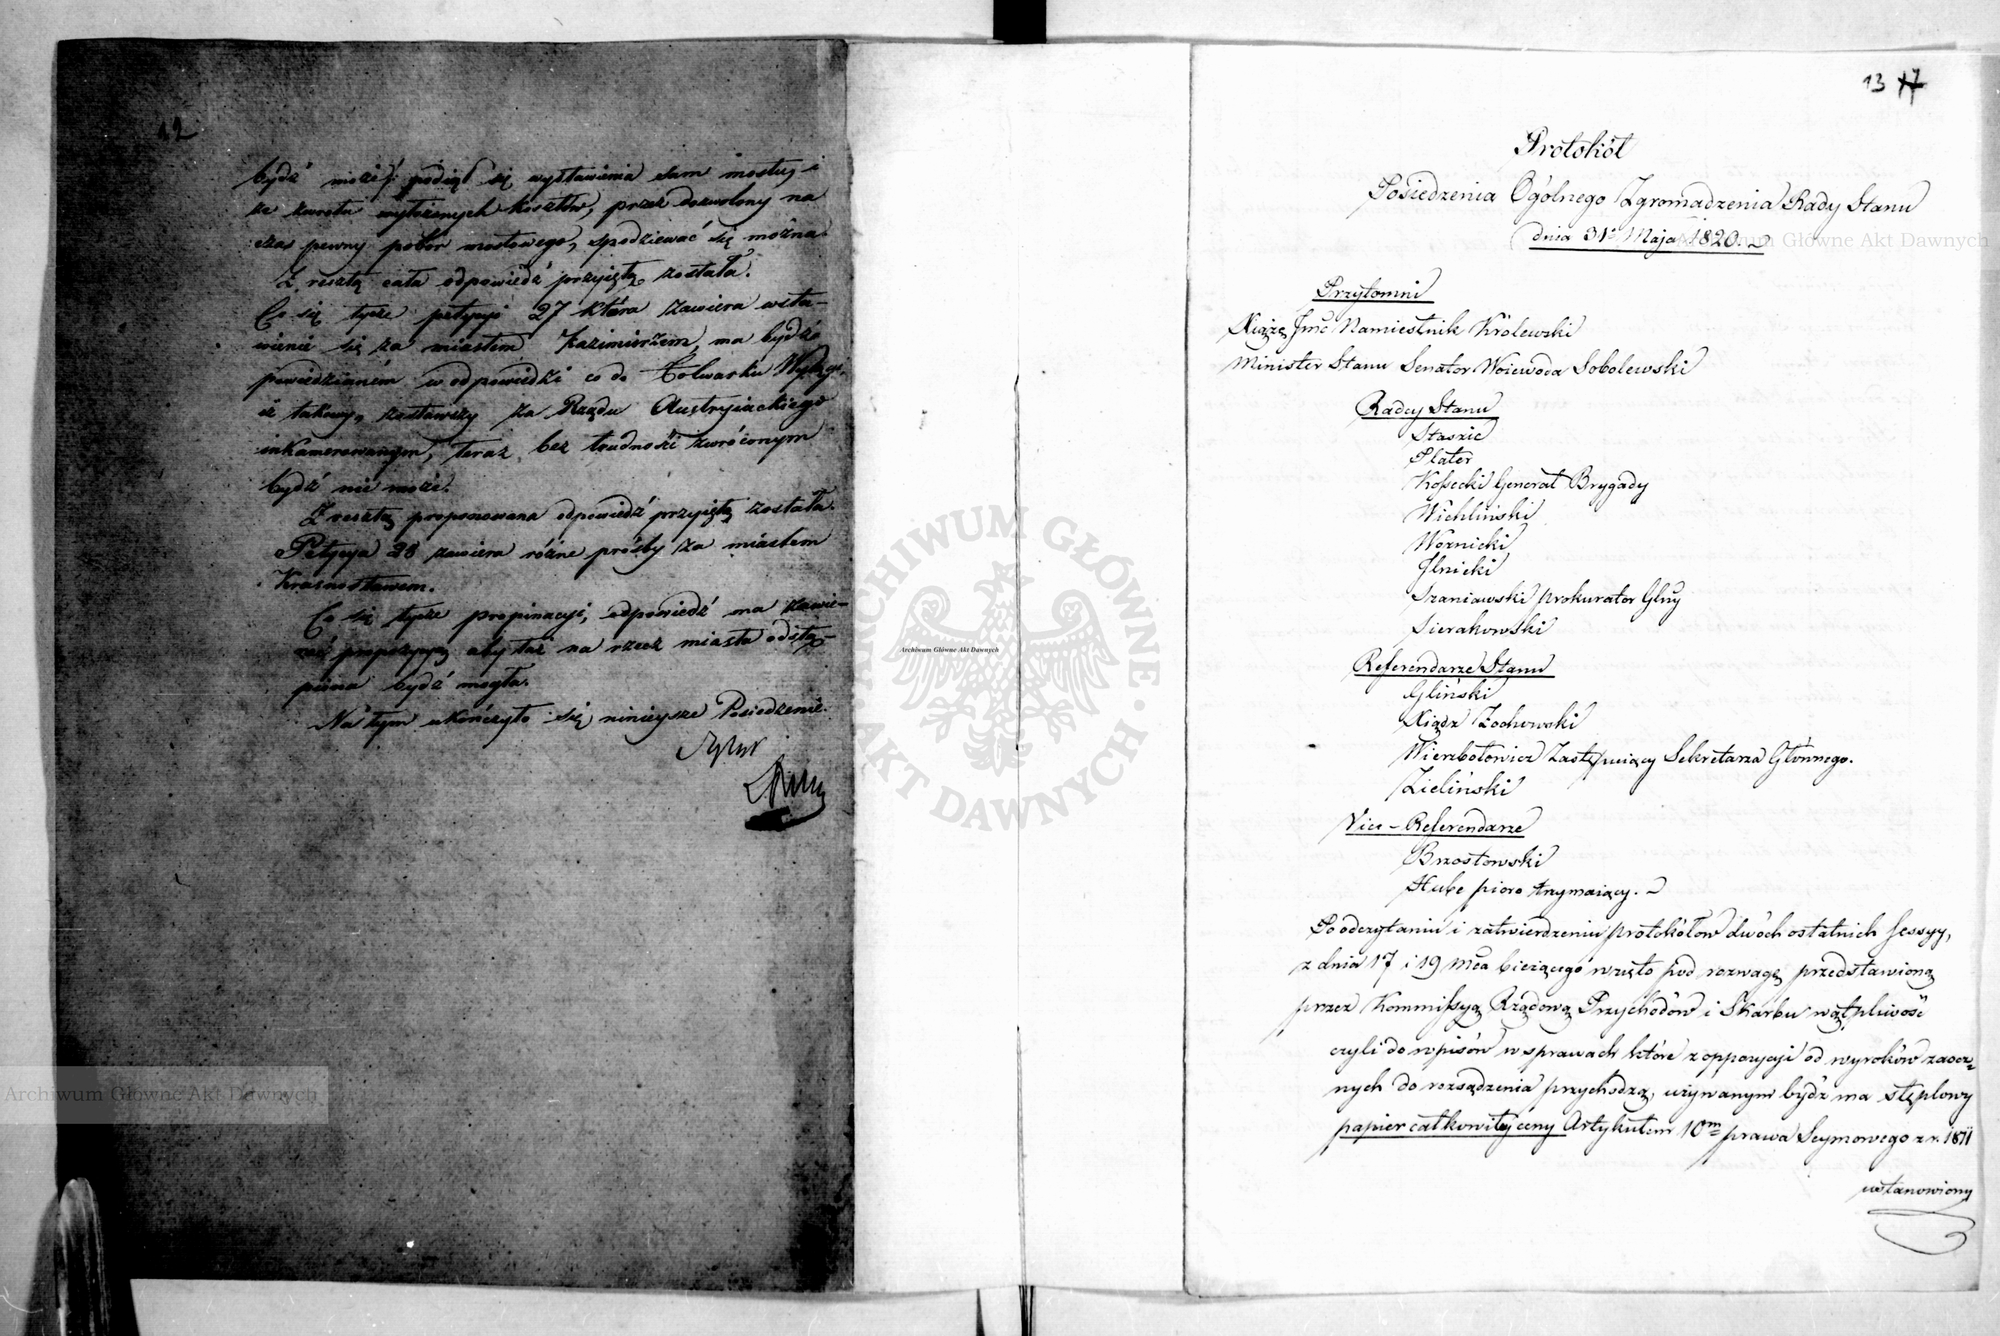 12
bydź może, podiął się wystawienia sam mostu, i
za zwrota wyłożonych kosztów, przez dozwolony na
czas pewny pobór mostowego, spodziewać się można.
Z resztą cała odpowiedź przyiętą została.
Co się tycze petycyi 27 która zawiera wsta-
wienie się za miastem Kazimierzem, ma bydź
powiedzianém w odpowiedzi co do Folwarku
iż takowy, zostawszy za Rządu Austryiackiego
inkamerowanym, teraz bez trudności zwróconym
bydź nie może.
Z resztą proponowana odpowiedź przyiętą została.
Petycya 28 zawiera różne prośby za miastem
Krasnostawem.
Co się tycze propinacyi, odpowiedź ma zawie-
rać propozycyą aby taż na rzecz miasta odstą-
piona bydź mogła.
Na tym ukończyło się ninieysze Posiedzenie.
13 17
Protokół
Posiedzenia Ogólnego Zgromadzenia Rady Stanu
dnia 31º Maja 1820.
Przytomni
Xiążę Jmć Namiestnik Królewski
Minister Stanu Senator Woiewoda Sobolewski
Radcy Stanu
Staszic
Plater
Kossecki Generał Brygady
Wichliński
Woznicki
Jlnicki
Szaniawski Prokurator Glny
Sierakowski
Referendarze Stanu
Gliński
Xiądz Zochowski
Wierzbołowicz Zastępuiący Sekretarza Głównego.
Zieliński
Vice-Referendarze
Brzostowski
Hube pioro trzymaiący.
Po odczytaniu i zatwierdzeniu protokółów dwóch ostatnich Sessyy,
z dnia 17 i 19 Mca bieżącego wzięto pod rozwagę przedstawioną
przez Kommissyą Rządową Przychodów i Skarbu wątpliwość
czyli do wpisów w sprawach które z oppozycyi od wyroków zaocz-
nych do rozsądzenia przychodzą, używanym bydź ma stęplowy
papier całkowitéy ceny Artykułem 10m prawa Seymowego z r. 1811
ustanowiony
ARCHIWUM GŁÓWNE · AKT DAWNYCH ·
Archiwum Główne Akt Dawnych
Archiwum Główne Akt Dawnych
Archiwum Główne Akt Dawnych